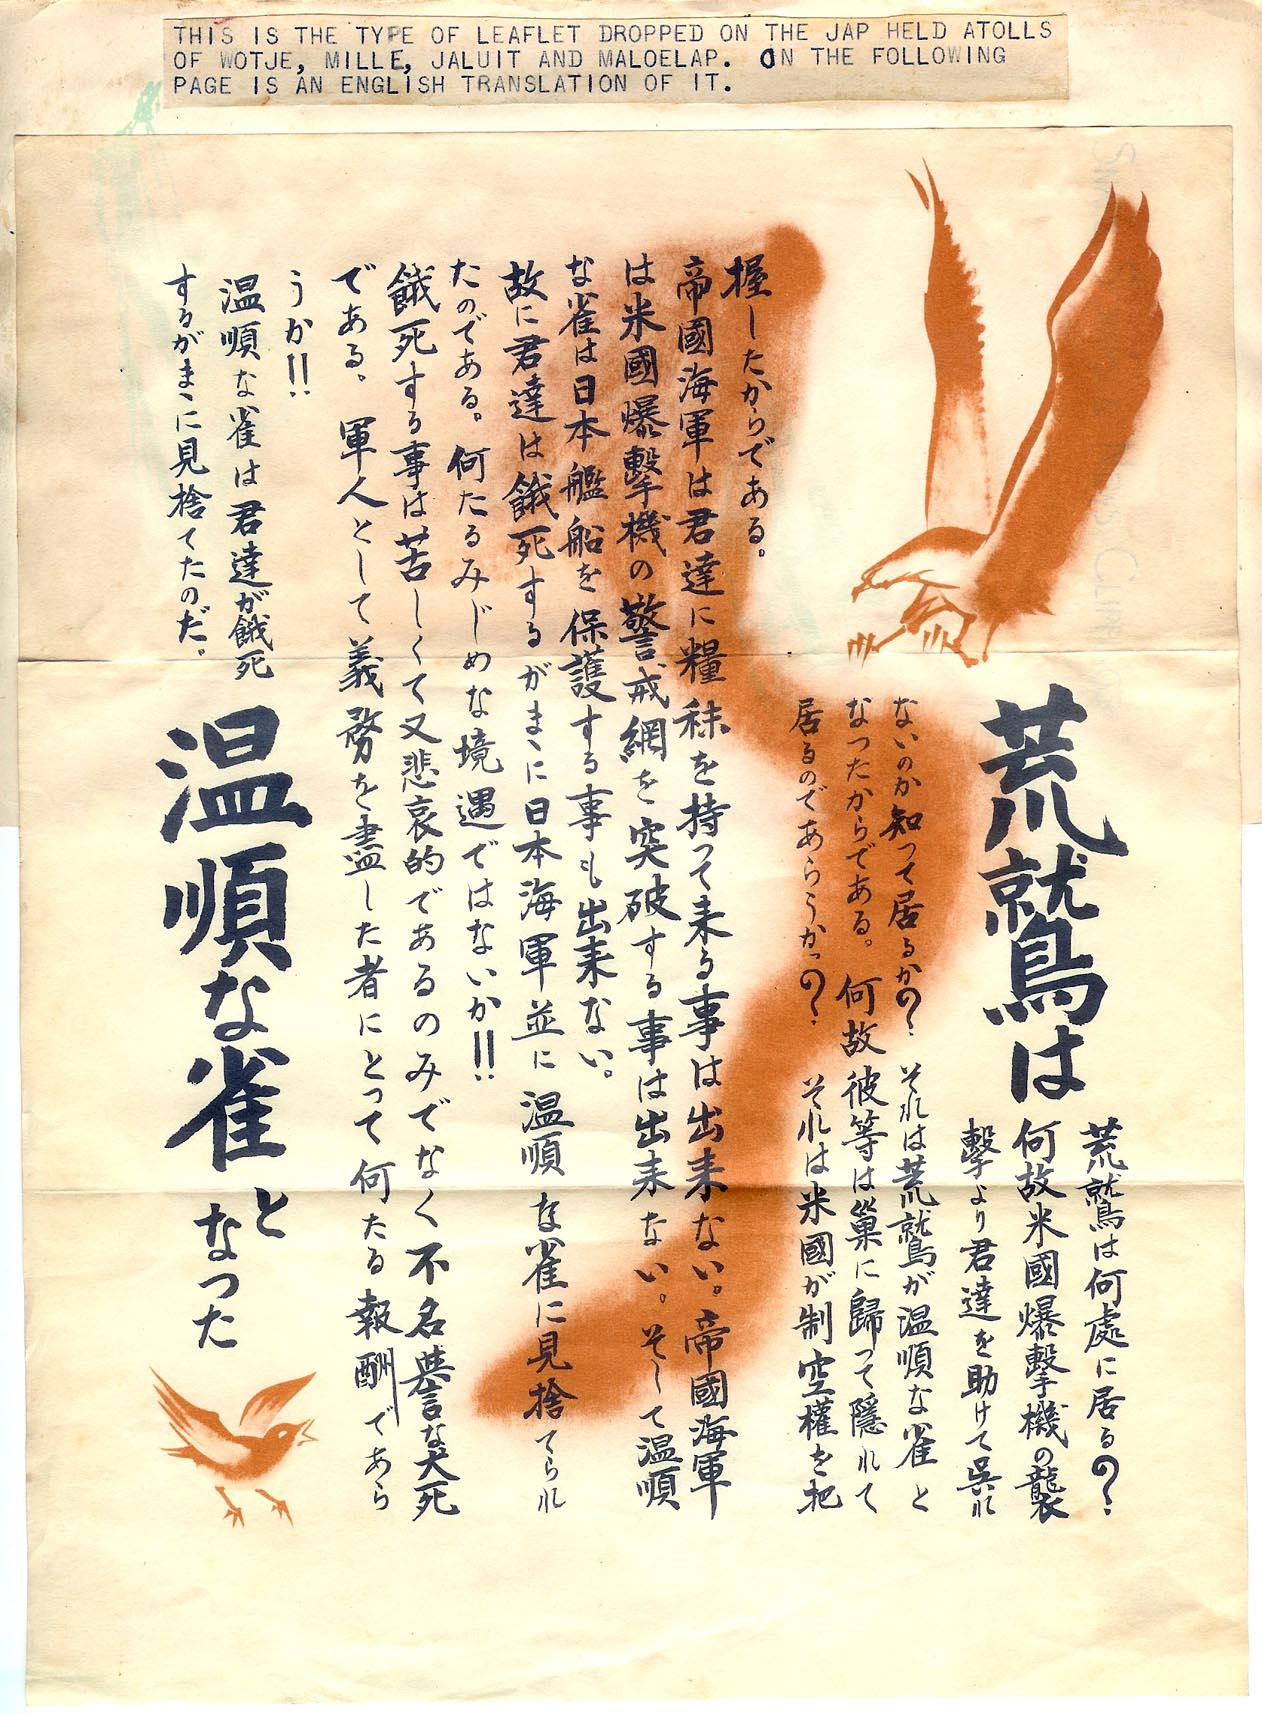 THIS IS THE TYPE OF LEAFLET DROPPED ON THE JAP HELD ATOLLS
OF WOTJE, MILLE, JALUIT AND MALOELAP. ON THE FOLLOWING
PAGE IS AN ENGLISH TRANSLATION OF IT.
荒鷲は
荒鷲は何處に居るの?
何故米國爆撃機の襲
撃より君達を助けて呉れ
ないのか知って居るかの? それは荒鷲が温順な雀と
なつたからである。何故彼等は巣に歸って隱れて
居るのであらうかっの? それは米國が制空權を把
握したからである。
帝國海軍は君達に糧秣を持って来る事は出来ない。帝國海軍
は米國爆撃機の警戒網を突破する事は出来ない。そして温順
な雀は日本艦船を保護する事も出来ない。
故に君達は餓死するがまゝに日本海軍並に温順な雀に見捨てられ
たのである。何たるみじめな境遇ではないか!!
餓死する事は苦しくて又悲哀的であるのみでなく不名誉な犬死
である。軍人として義務を盡した者にとって何たる報酬であら
うか!!
温順な雀は君達が餓死
するがまゝに見捨てたのだ。
温順な雀と
なつた